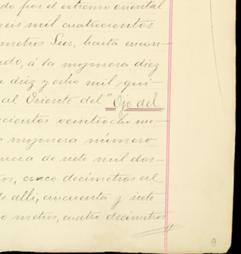 do por el estremo oriental
seis mil cuatrocientos
metros Sur, hasta encon-
ado, á la mojonera diez
a diez y ocho mil, qui-
al Oriente del "Ojo del
cientos veintiocho me-
mojonera número
nueca de siete mil dos-
os, cinco decímetros al
de allí, cincuenta y siete
o metros, cuatro decímetros